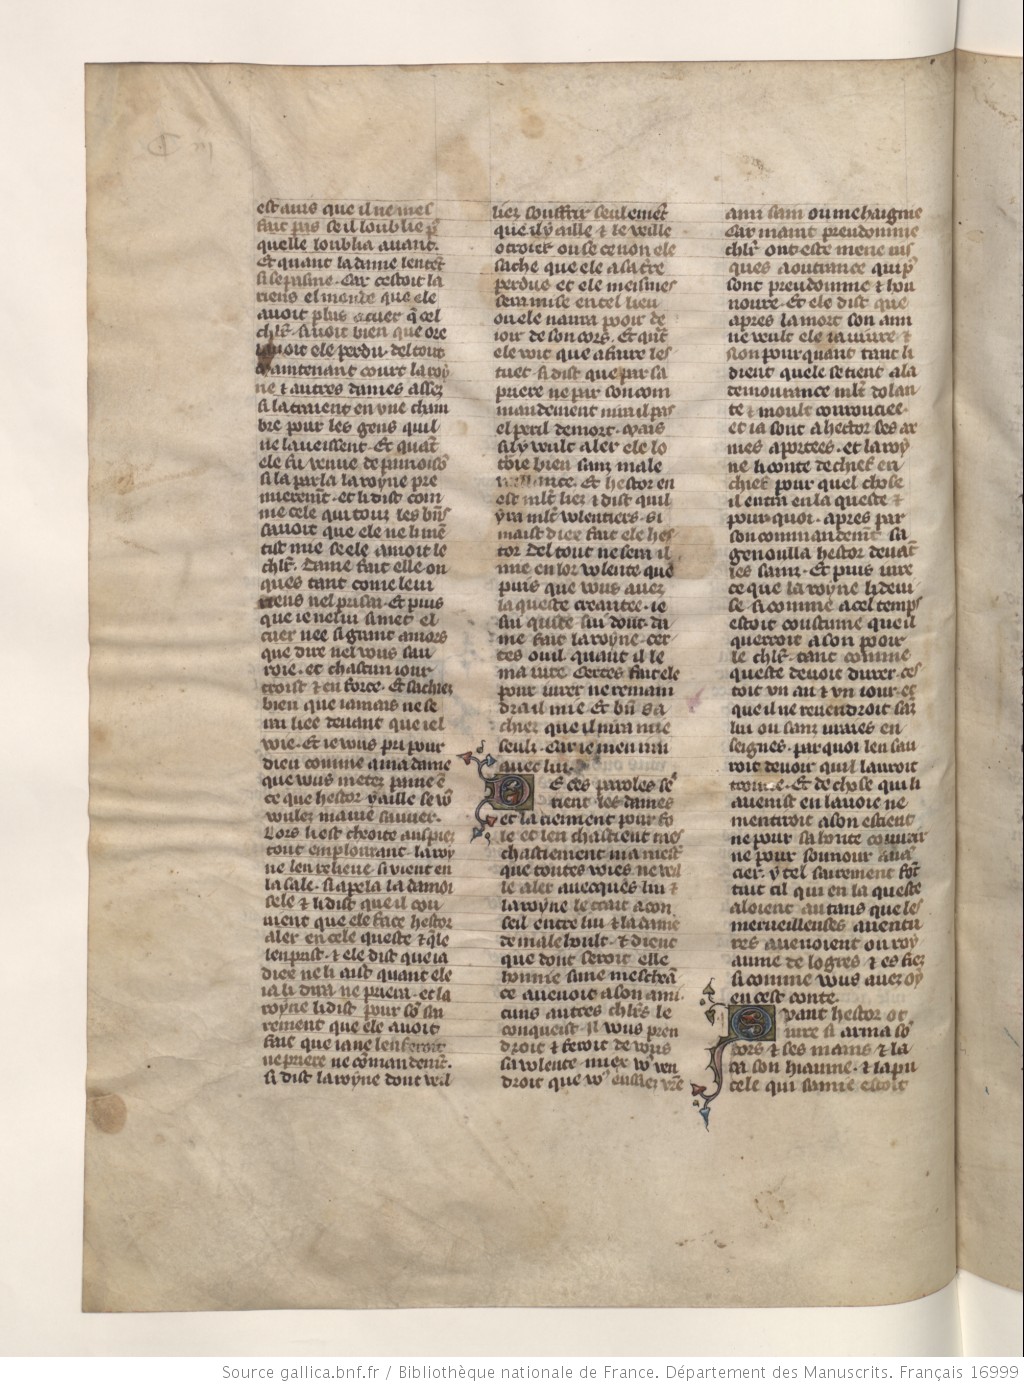 est auis que il ne mes
fait pas se il loublie p
quelle loublia auant.
Et quant la dame lentēt
si se pasme. Car cestoit la
riens el monde que ele
auoit plus a cuer q̄ cel
chlr. sauoit bien que ore
lauoit ele perdu. del tout
Maintenant court la roy
ne & autres dames assez
si la traient en vne cham
bre pour les gens quil
ne la ueissent. Et quāt
ele fu venue de pamoisō
si la parla la royne pre
mierenīt. et li dist com
me cele qui touz les biēs
sauoit que ele ne li mē
tist mie se ele amoit le
chlr. Dame fait ele on
ques tant come leui
riens nel prisai. Et puis
que ie ne lui si met el
cuer nee si grant amors
que dire nel vous sau
roie. et chascun iour
croist & en force. Et sachiez
bien que iamais ne se
rai liee deuant que iel
voie. Et ie vous pri pour
dieu comme a ma dame
que vous metez paine ē
ce que hestor y aille se vꝰ
voulez ma vie sauuer.
Lors li est cheoite aus piez
tout em plourant. la roy
ne len relieue. si vient en
la sale. si apela la damoi
sele & li dist que il cou
uient que ele face hestor
aler en cele queste & q̄le
len prist. & ele dist que ia
diex ne li aist quant ele
ia li dira ne priera. et la
royne li dist pour sō sai
rement que ele auoit
fait que iane len feroit
ne priere ne cōmandenīt.
si dist la royne dont vol
liez souffrir seulemēt
que il y aille & le veille
otroier ou se ce non ele
sache que ele a sa tr̄e
perdue et ele meismes
sera mise en tel lieu
ou ele naura pooir de
ioir de son cors. Et quāt
ele voit que a faire les
tuet. si dist que par sa
priere ne par son com
mandement nira il pas
el peril de mort. Mais
sil y veult aler ele lo
troie bien sanz male
veillance. Et hestor en
est mlt liez & dist quil
yra mlt volentiers. si
maist diex fait ele hes
tor. Del tout ne sera il
mie en lor volente que
puis que vous auez
la queste creantee. ie
sui quiste sui dont da
me fait la royne. cer
tes oul quant il le
ma iure. Certes fait ele
pour iurer ne remain
dra il mie. Et bn̄ sa
chiez que il nira mie
seulz. Car ie men irai
auec lui.
De ces paroles se
rient les dames
et la tiennent pour fo
le et len chastient mes
chastiement ni a mest
que toutes voies ne voil
le aler auecques lui &
la royne le trait a con
seil entre lui & la dame
de malehoult. & dient
que dont seroit elle
honnie sune mescheā
ce auenoit a son ami.
cuns autres chlrs le
conqueist. Il vous pren
droit & feroit de vous
sa volente. miex vꝰ ven
droit que vꝰ eussiez vr̄e
ami sain ou mehaignie
Car maint preudomme
chlr ont este mene ius
ques a outrance qui p̄
sont preudomme & hon
noure. Et ele dist que
apres la mort son ami
ne veult ele ia viure &
non pour quant tant li
dient quele se tient a la
demourance mlt dolan
te & moult courouciee.
et ia sont a hector ses ar
mes aportees. et la roy
ne li conte de chief en
chief pour quel chose
il entra en la queste &
pour quoi. apres par
son commandemēt sa
genoulla hestor deuāt
les sainz. Et puis iure
ce que la royne li deui
se. si comme a cel temps
estoit coustume que il
querroit a son pooir
le chlr. tant comme
queste deuoit durer. ces
toit vn an & vn iour. et
que il ne reuendroit sāz
lui ou sanz vraies en
seignes. par quoi len sau
roit de uoir quil lauroit
trouue. Et de chose qui li
auenist en la uoie ne
mentiroit a son escient
ne pour sa honte couurir
ne pour sounour auā
cier. y tel sairement fōt
tuit cil qui en la queste
aloient autans que les
merueilleuses auentu
res auenoient ou roy
aume de logres & es fiez
si comme vous auez oy
en cest conte.
Quant hestor ot
iure si arma sō
cors & ses mains & la
ca son hiaume. & la pu
cele qui samie estoit
Source gallica.bnf.fr / Bibliothèque nationale de France. Département des Manuscrits. Français 16999